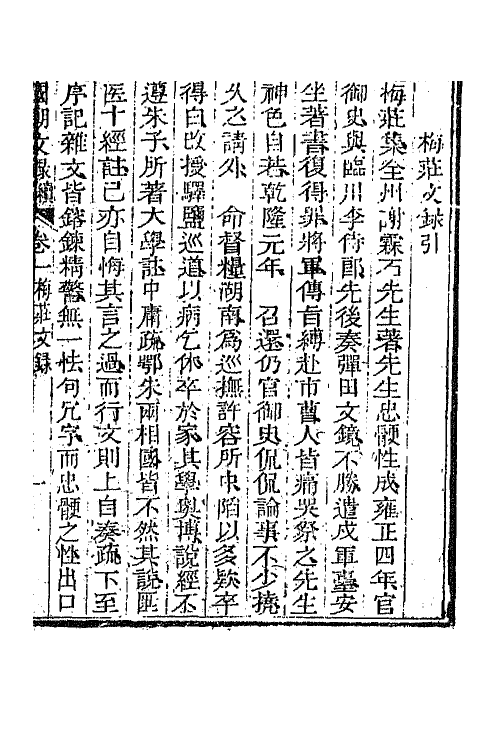 梅莊文録引
梅莊集全州謝霖石先生著先生忠骾性成雍正四年官
御史與臨川李侍郎先後奏彈田文鏡不勝遣戍軍臺安
坐著書復得罪將軍傳旨縛赴市曹人皆痛哭祭之先生
神色自若乾隆元年 召還仍官御史侃侃論事不少撓
久之請外 命督糧湖南爲巡撫許容所中陷以多欵卒
得白改授驛鹽巡道以病乞休卒於家其學奥博說經不
遵朱子所著大學註中庸疏鄂朱兩相國皆不然其說匪
医十經註己亦自悔其言之過而行文則上自奏疏下至
序記雜文皆鎔鍊精警無一怯句冗字而忠骾之性出口
國朝文録續 卷一梅莊文録 一